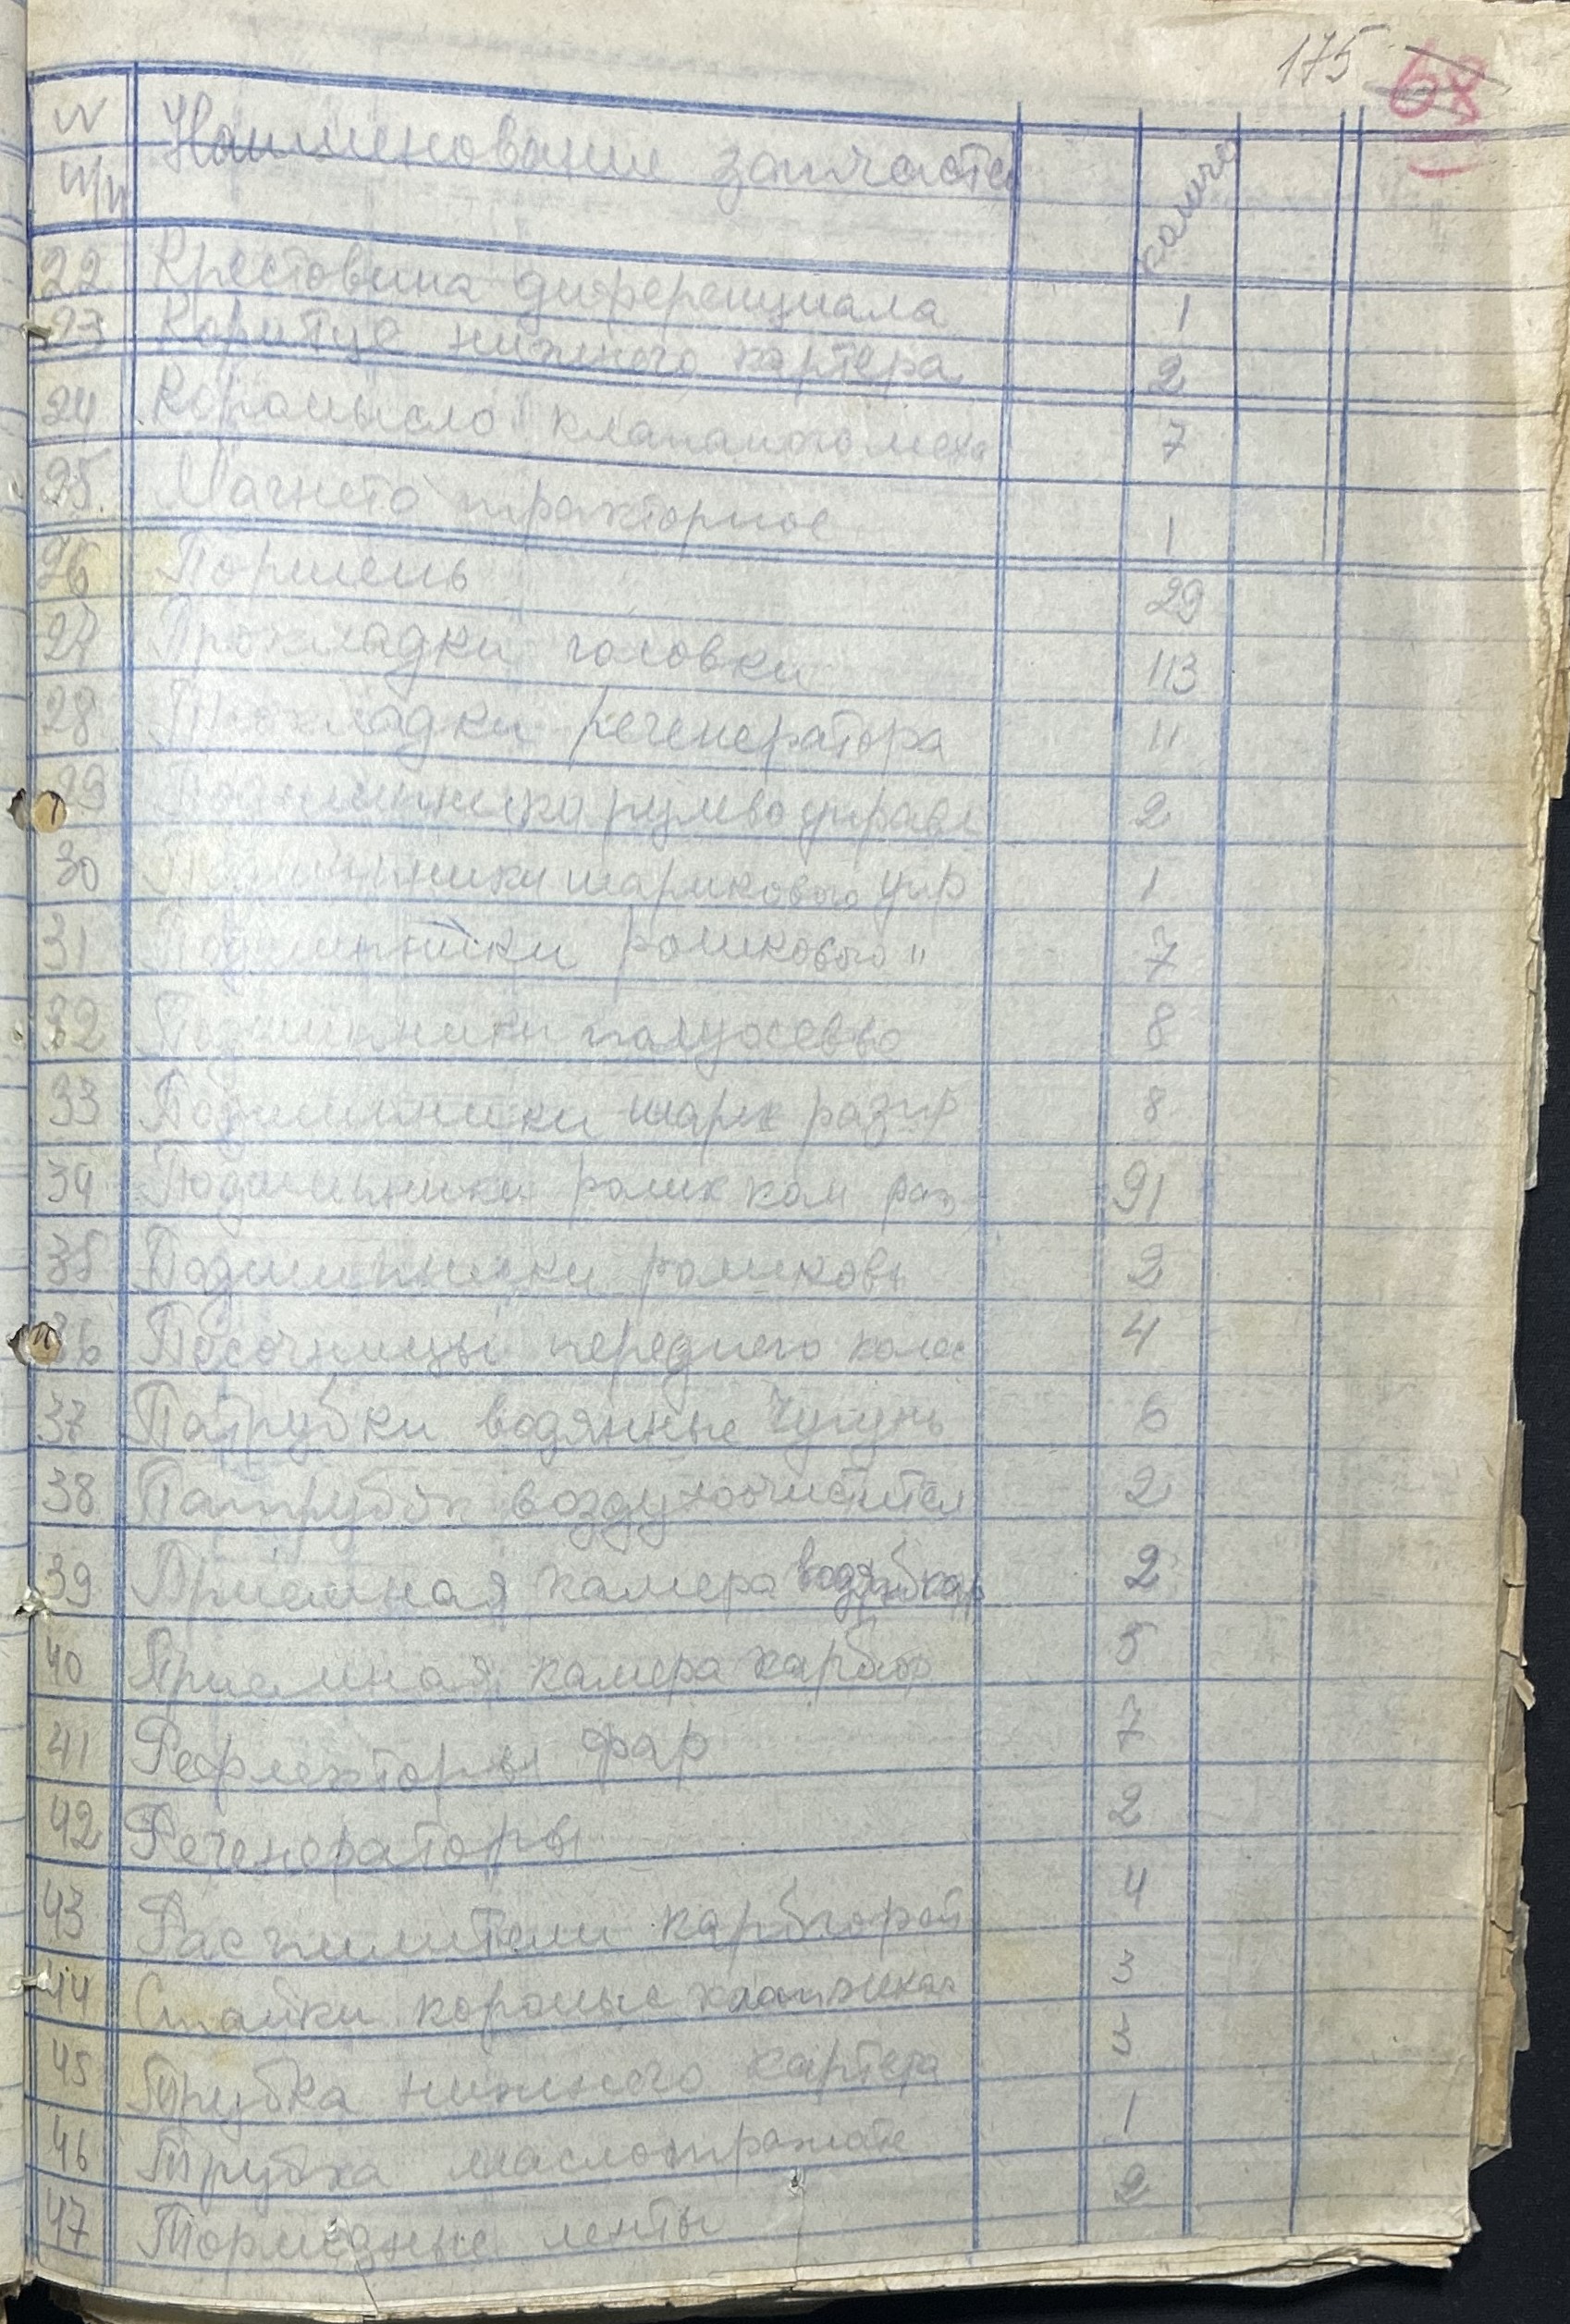 175 68
N Наименование запчастей колич
п/п
22 Крестовина диференциала 1
23 Корытце нижнего картера 2
24 Коромысло клапаного меха 7
25. Магнето тракторное 1
26 Поршень 29
27 Прокладки головки 113
28 Прокладки регенератора 11
29 Подшипника рулево управл 2
30 Подшипники шарикового упр 1
31 Подшипники роликового " 7
32 Подшипники полуосевые 8
33 Подшипники шарик разн 8
34 Подшипники ролик кон раз 91
35 Подшипники роликовы 2
36 Песочницы переднего колес 4
37 Патрубки водянные чугунь 6
38 Патрубок воздухоочистител 2
39 Приемная камера 2
40 Приемная камера карбюр 5
41 Рефлекторы фар 7
42 Регенераторы 2
43 Распылители карбюрат 4
44 Стойки коромыс 3
45 Трубка нижнего картера 3
46 Трубка маслоотражате 1
47 Тормозные ленты 2